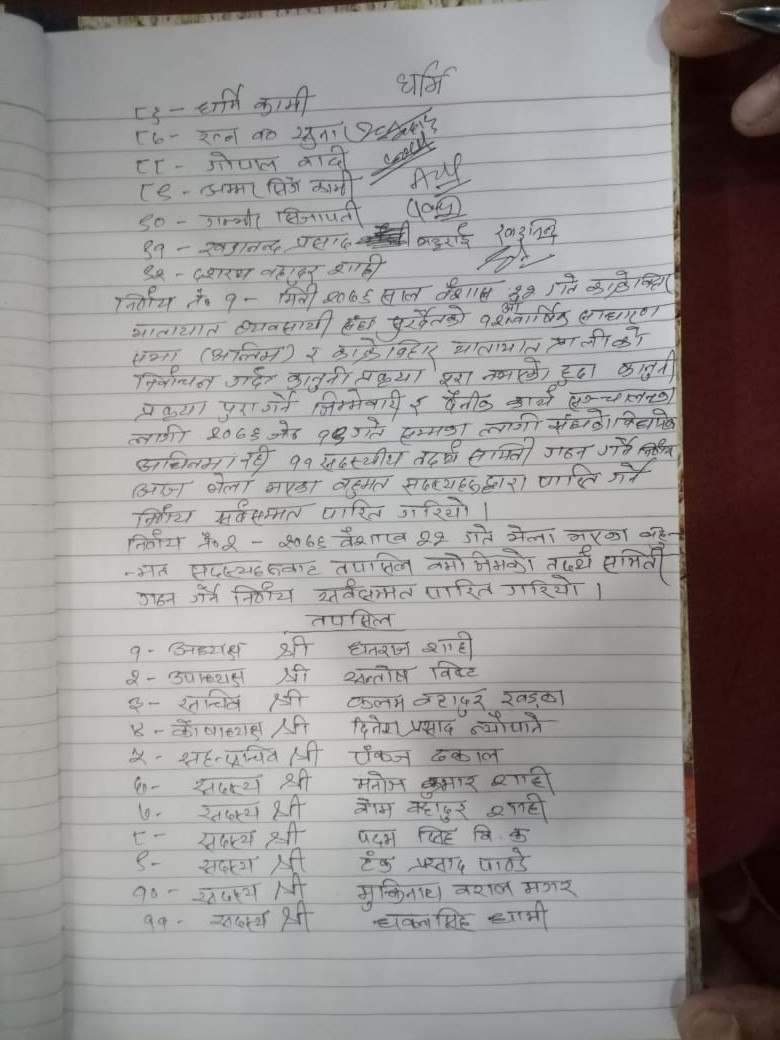 धर्मि
८६ - धर्मि कामी
८७ - रत्न व०
८८ - गोपाल वादी
८९ - अम्मर सिंह कामी
९० - गम्भीर सिजापती
९१ - खडानन्द प्रसाद जइराई
९२ - दशरथ वहादुर शाही
निर्णय नं० १ - मिती २०७६ साल वैशाख २२ गते काक्रेविहार
यातायात व्यवसायी संघ सुर्खेतको १२औं वार्षिक साधारण
सभा (अन्तिम) र काक्रेविहार यातायात प्रा ली को
निर्वाचन गर्दा कानुनी प्रकृया पुरा नभएको हुदा कानुनी
प्रकृया पुरा गर्ने जिम्मेवारी र दैनीक कार्य सञ्चालनका
लागी २०७६ जेठ १९ गते सम्मका लागी संघको विधानको
अधिनमा रही ११ सदस्यीय तदर्थ समिती गठन गर्ने निर्णय
आज भेला भएका वहुमत सदस्यहरुद्वारा पारित गर्ने
निर्णय सर्वसम्मत पारित गरियो ।
निर्णय नं २ - २०७६ वैशाख २२ गते भेला भएका वहु-
-मत सदस्यहरुवाट तपासिल वमोजिमको तदर्थ समिती
गठन गर्ने निर्णय सर्वसम्मत पारित गरियो ।
तपसिल
१ - अध्यक्ष श्री धनराज शाही
२ - उपाध्यक्ष श्री सन्तोष विष्ट
३ - सचिव श्री कलम वहादुर खड्का
४ - कोषाध्यक्ष श्री दिनेश प्रसाद न्यौपाने
५ - सह-सचिव श्री पंकज ढकाल
६ - सदस्य श्री मनोज कुमार शाही
७ - सदस्य श्री वोम वहादुर शाही
८ - सदस्य श्री पदम सिंह वि. क
९ - सदस्य श्री टंक प्रसाद पाण्डे
१० - सदस्य श्री मुक्तिनाथ वराल मगर
११ - सदस्य श्री धवलसिंह धामी